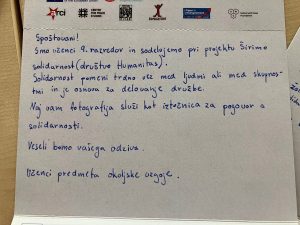 rci
Spoštovani!
Smo učenci 9. razredov in sodelujemo pri projektu Širimo
solidarnost (društvo Humanitas).
Solidarnost pomeni trdno vez med ljudmi ali med skupnos-
tmi in je osnova za delovanje družbe.
Naj vam fotografija služi kot iztočnica za pogovor o
solidarnosti.
Veseli bomo vašega odziva.
Učenci predmeta okoljske vzgoje.